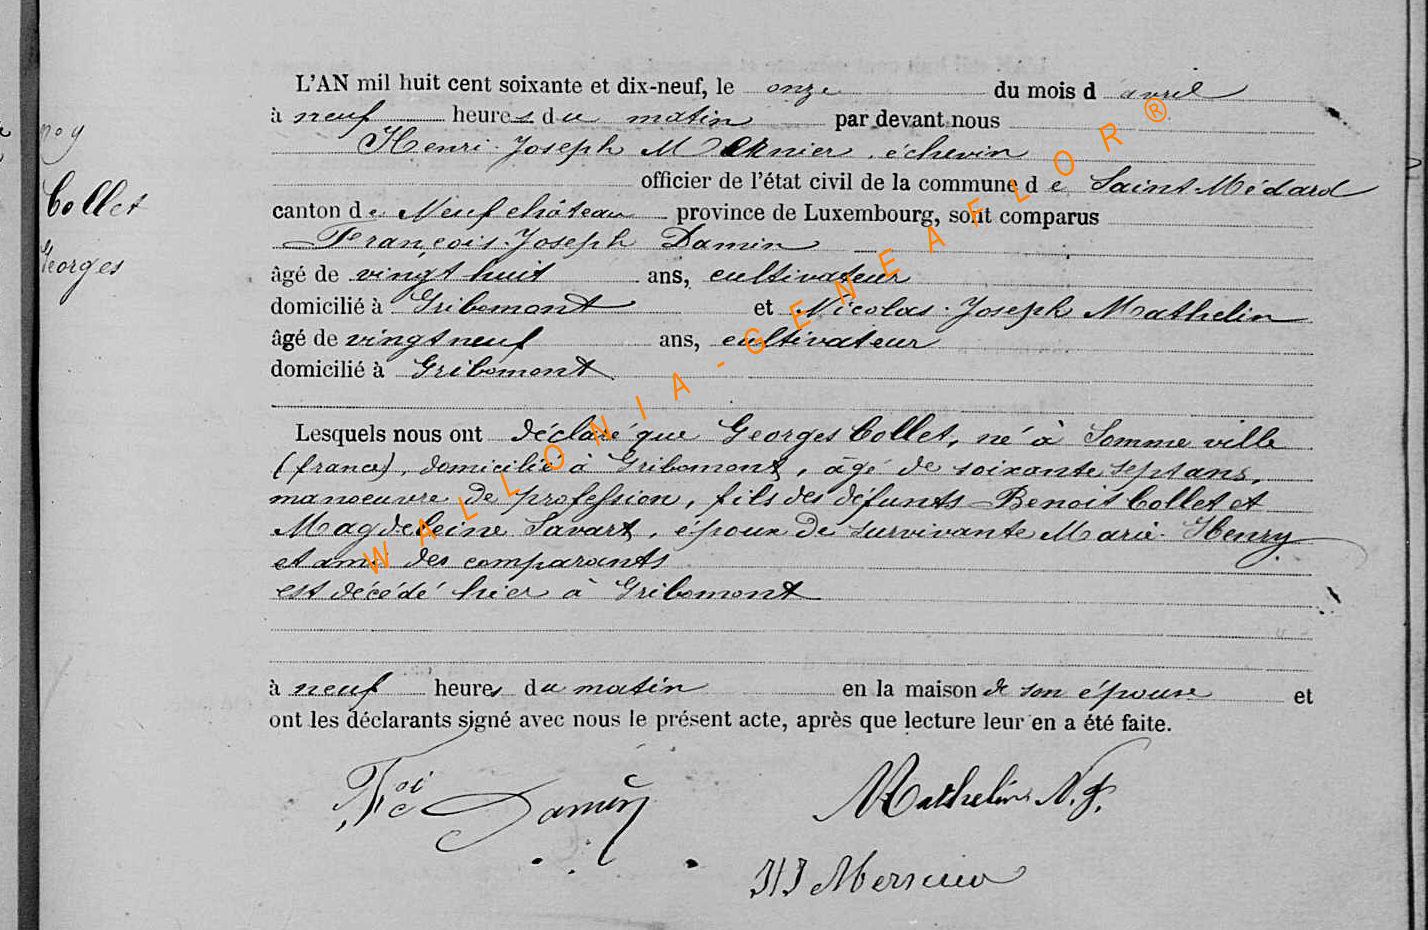 L'AN mil huit cent soixante et dix-neuf, le onze du mois d avril
à neuf heures du matin par devant nous
Henri-Joseph Mernier, échevin
officier de l'état civil de la commune de Saint Médard
canton de Neufchâteau province de Luxembourg, sont comparus
François-Joseph Damin
âgé de vingt huit ans, cultivateur
domicilié à Gribomont et Nicolas-Joseph Mathelin
âgé de vingt neuf ans, cultivateur
domicilié à Gribomont
Lesquels nous ont déclaré que Georges Collet, né à Somme ville
(france), domicilié à Gribomont, âgé de soixante sept ans,
manoeuvre de profession, fils des défunts Benoit Collet et
Magdeleine Savart, époux de survivante Marie Henry
et ami des comparants
est décédé hier à Gribomont
à neuf heures du matin en la maison de son épouse et
ont les déclarants signé avec nous le présent acte, après que lecture leur en a été faite.
Damin
Mathelin N. J.
HJ Mernier
Collet
Georges
WALLONIA-GENEAFLOR®